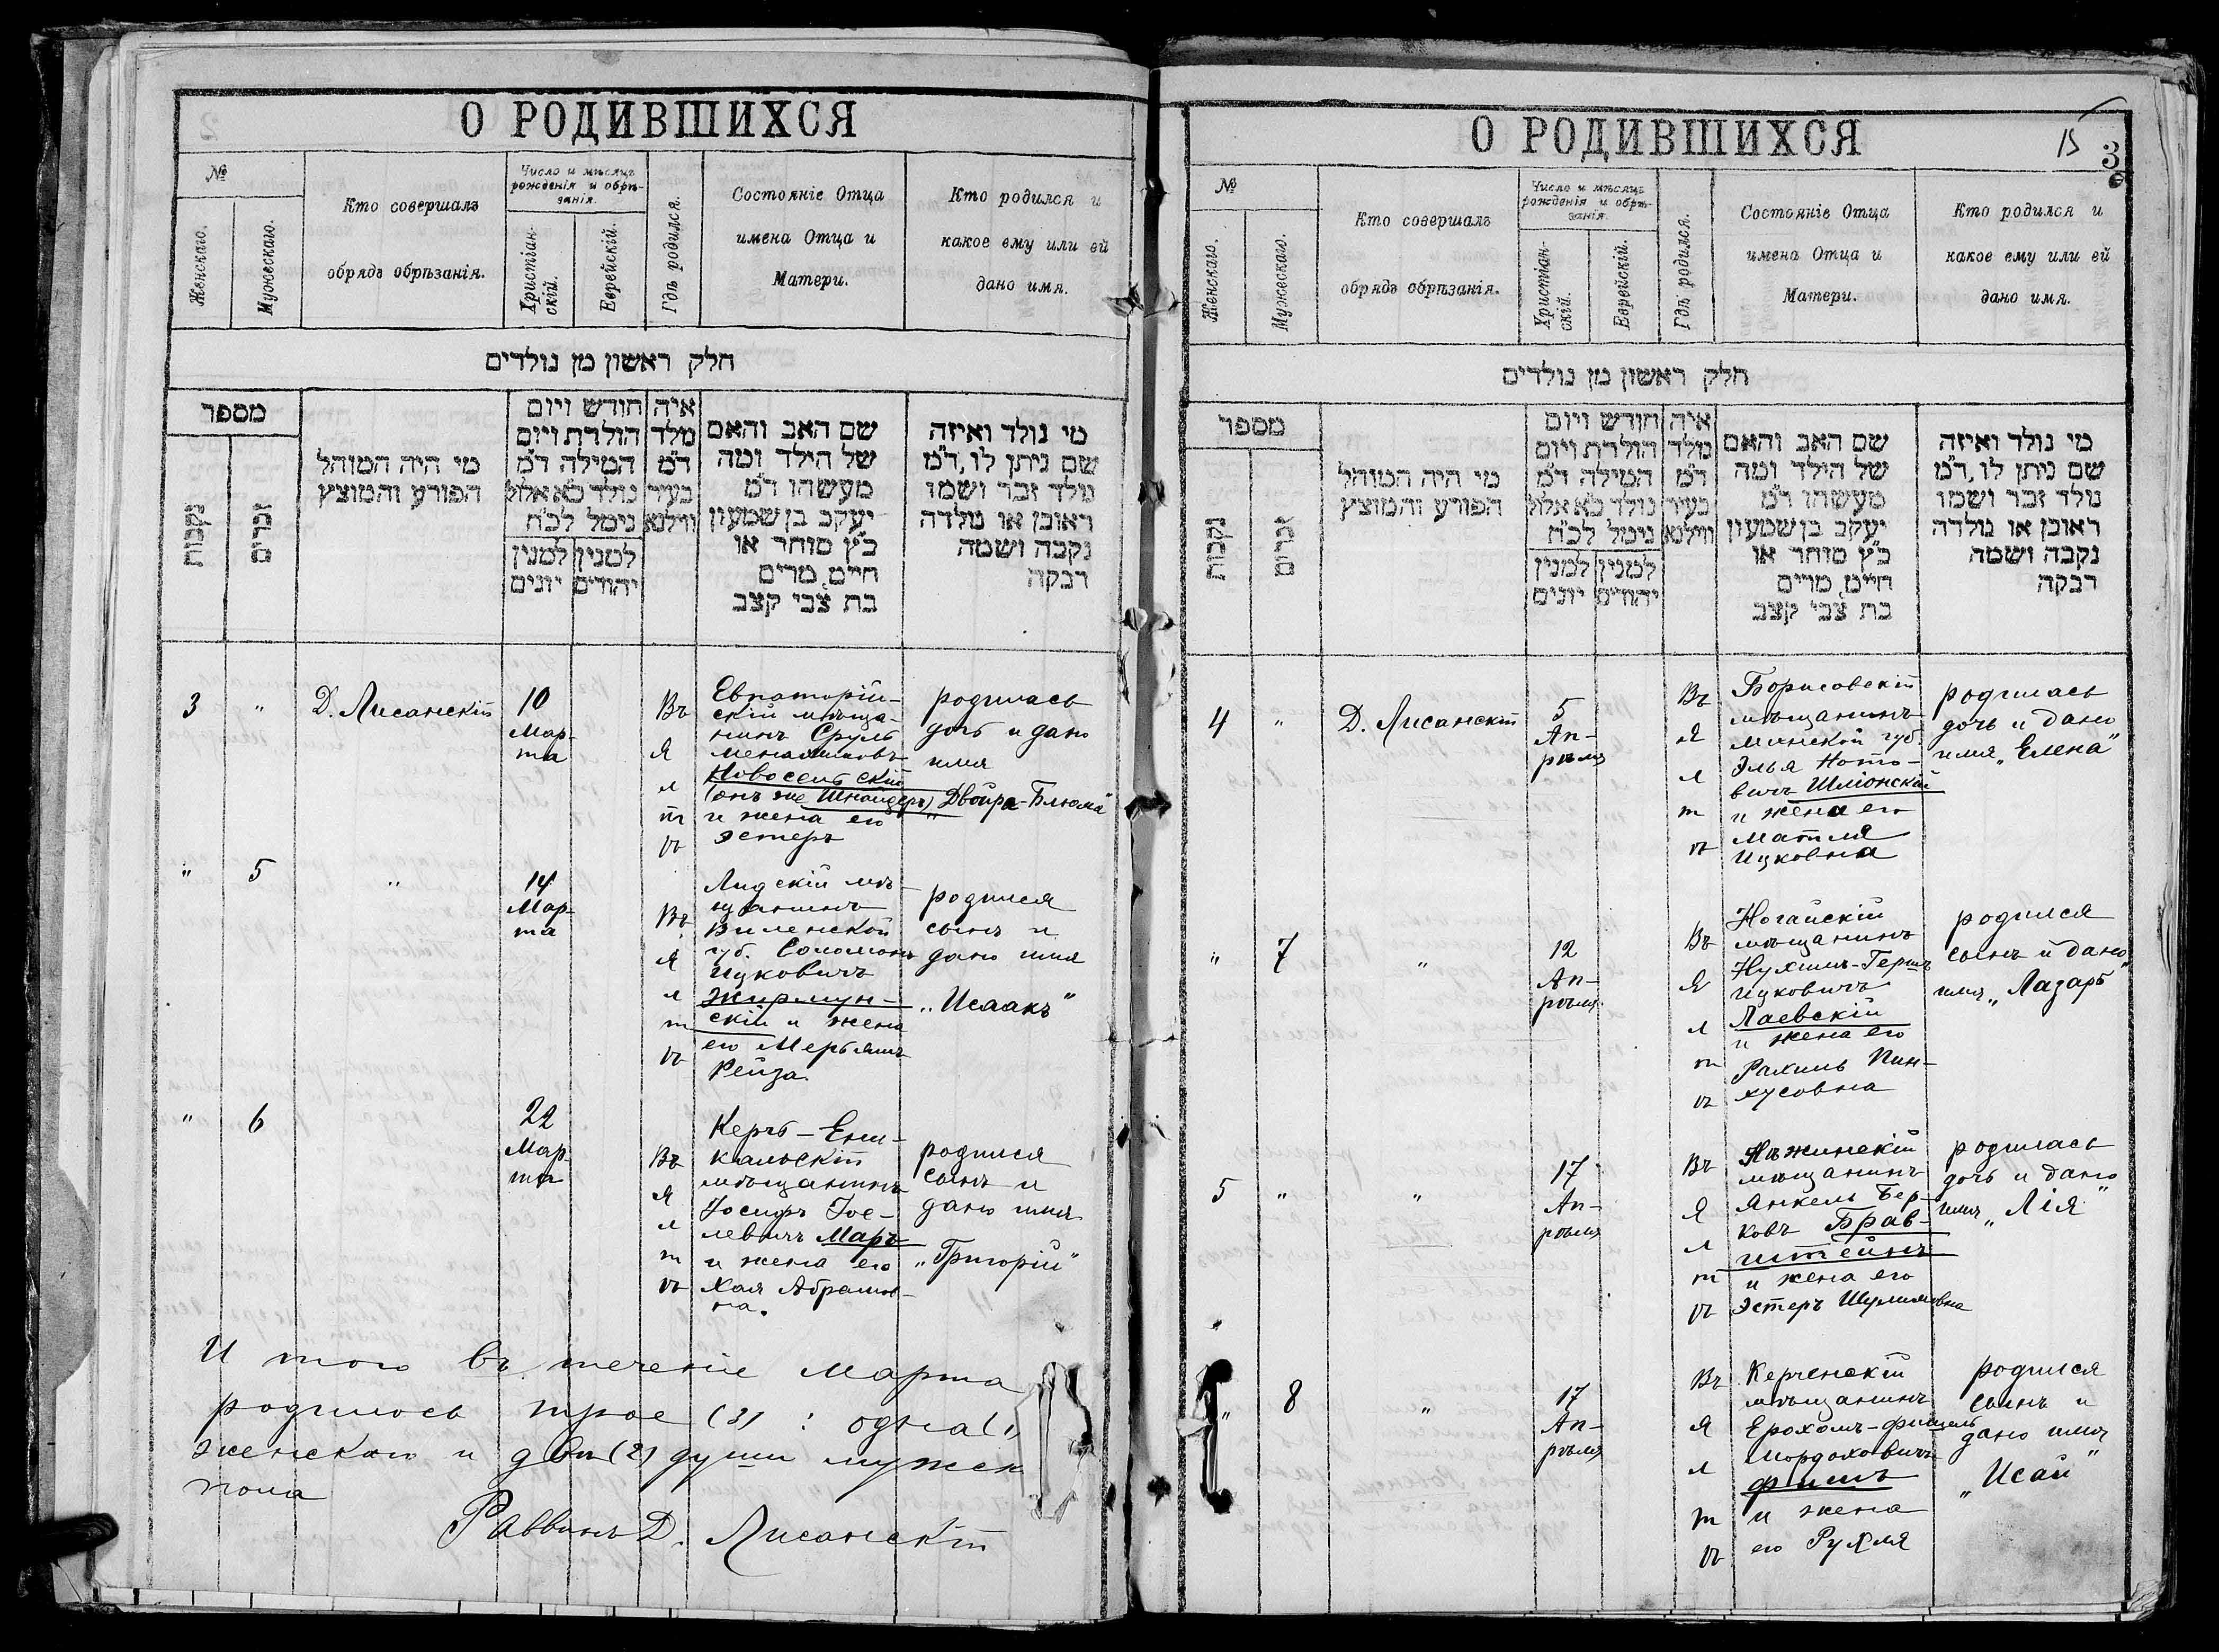 О РОДИВШИХСЯ
№
Женскаго.
Мужескаго.
Кто совершалъ
обрядъ обрѣзанія.
Число и мѣсяцъ
рожденія и обрѣ-
занія.
Христіан-
скій.
Еврейскій.
Гдѣ родился.
Состояніе Отца
имена Отца и
Матери.
Кто родился и
какое ему или ей
дано имя.
חלק ראשון מן נולדים
מספר
נקבות
זכרים
מי היה המוהל
הפורע והמוצץ
חודש ויום
הולדת ויום
המילה ד״מ
נולד כ״א אלול
נימל לכ״ח
למנין
יהודים
למנין
יונים
איה
מלד
ד״מ
בעיר
ווילנא
שם האב והאם
של הילד ומה
מעשהו ד״מ
יעקב בן שמעון
כ״ץ סוחר או
חיים, מרים
בת צבי קצב
מי נולד ואיזה
שם ניתן לו, ד״מ
נולד זכר ושמו
ראובן או נולדה
נקבה ושמה
רבקה
3
"
Д. Лисанскій
10
Мар-
та
Въ
Я
л
т
ѣ
Евпаторій-
скій мѣща-
нинъ Сруль
Новосельскій
(онъ же Шнайдеръ)
и жена его
Эстеръ
родилась
дочь и дано
имя
„Двойра-Блюма"
"
5
"
14
Мар-
та
Въ
Я
л
т
ѣ
Лидскій мѣ-
щанинъ
Виленской
губ. Соломонъ
Ицковичъ
Жирмун-
скій и жена
его Мерьямъ
Рейза.
родился
сынъ и
дано имя
„Исаакъ"
"
6
22
Мар-
та
Въ
Я
л
т
ѣ
Керчь-Ени-
кальскій
мѣщанинъ
Іосифъ Іое-
левичъ Маръ
и жена его
Хая Абрамов-
на.
родился
сынъ и
дано имя
„Григорій"
И того въ теченіе Марта
родилось трое (3) : одна (1)
женскаго и двѣ (2) души мужск
пола
Раввинъ Д. Лисанскій
О РОДИВШИХСЯ
3
№
Женскаго.
Мужескаго.
Кто совершалъ
обрядъ обрѣзанія.
Число и мѣсяцъ
рожденія и обрѣ-
занія.
Христіан-
скій.
Еврейскій.
Гдѣ родился.
Состояніе Отца
имена Отца и
Матери.
Кто родился и
какое ему или ей
дано имя.
חלק ראשון מן נולדים
מספר
נקבות
זכרים
מי היה המוהל
הפורע והמוצץ
חודש ויום
הולדת ויום
המילה ד״מ
נולד כ״א אלול
נימל לכ״ח
למנין
יהודים
למנין
יונים
איה
מלד
ד״מ
בעיר
ווילנא
שם האב והאם
של הילד ומה
מעשהו ד״מ
יעקב בן שמעון
כ״ץ סוחר או
חיים, מרים
בת צבי קצב
מי נולד ואיזה
שם ניתן לו, ד״מ
נולד זכר ושמו
ראובן או נולדה
נקבה ושמה
רבקה
4
"
Д. Лисанскій
5
Ап-
рѣля
Въ
Я
л
т
ѣ
Борисовскій
мѣщанинъ
Минской губ.
Элья Ното-
вичъ Шліонскій
и жена его
Матля
Ицковна
родилась
дочь и дано
имя „Елена"
"
7
"
12
Ап-
рѣля
Въ
Я
л
т
ѣ
Ногайскій
мѣщанинъ
Нухимъ-Гершъ
Ицковичъ
Лаевскій
и жена его
Рахиль Пин-
хусовна
родился
сынъ и дано
имя „Лазарь"
5
"
"
17
Ап-
рѣля
Въ
Я
л
т
ѣ
Нѣжинскій
мѣщанинъ
Янкель Бер-
ковъ Брав-
штейнъ
и жена его
Эстеръ Шулимовна
родилась
дочь и дано
имя „Лія"
"
8
"
17
Ап-
рѣля
Въ
Я
л
т
ѣ
Керченскій
мѣщанинъ
Ерохомъ-Фишель
Мордоховичъ
и жена
его Рухля
родился
сынъ и
дано имя
„Исай"